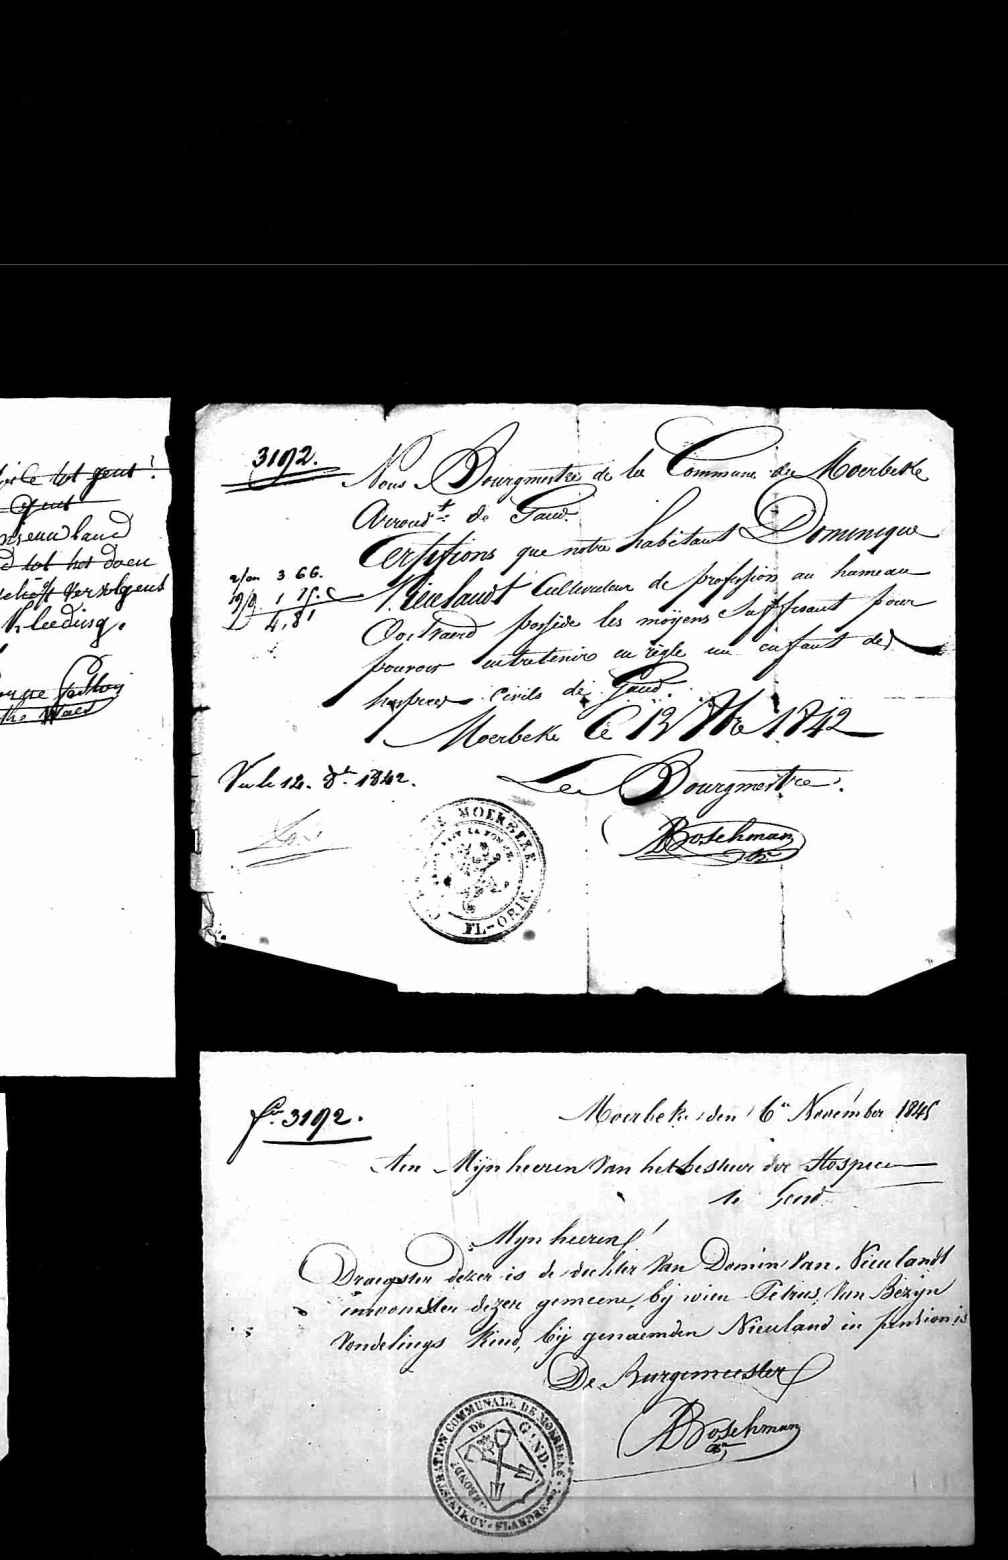 tot gent!
Gent
tot het doen
vervolgens
Kleeding.
3192.
Nous Bourgmestre de la Commune de Moerbeke
Arrondt. de Gand.
Certifions que notre habitant Dominique
Nieulandt Cultivateur de profession au hameau
Oostrand possède les moÿens suffisant pour
pouvoir entretenir en règle un enfant des
hospices civils de Gand.
Moerbeke le 12 1842
Le Bourgmestre.
3 66.
1 15. c
4,81
Vu le 12. 1842.
ABoschman
MOERBEKE.
FL-ORIE.
3192.
Moerbeke den 6en November 1845
Aen Mijnheeren Van het bestuur der Hospicen
te Gend
Mijnheeren!
Draegster dezer is de dochter Van Domin. Van. Nieulandt
inwoonster dezer gemeene, bij wien Petrus Van Bezyn
Vondelings Kind, bij genaemden Nieuland in pention is
De Burgemeester
ABoschman
ADMINISTRATION COMMUNALE DE MOERBEKE
FLANDRE
ARROND.
DE
GAND.